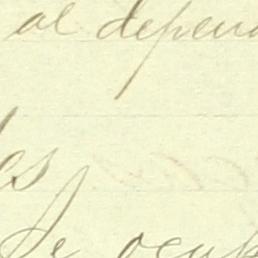 al depend
es
Se ocup